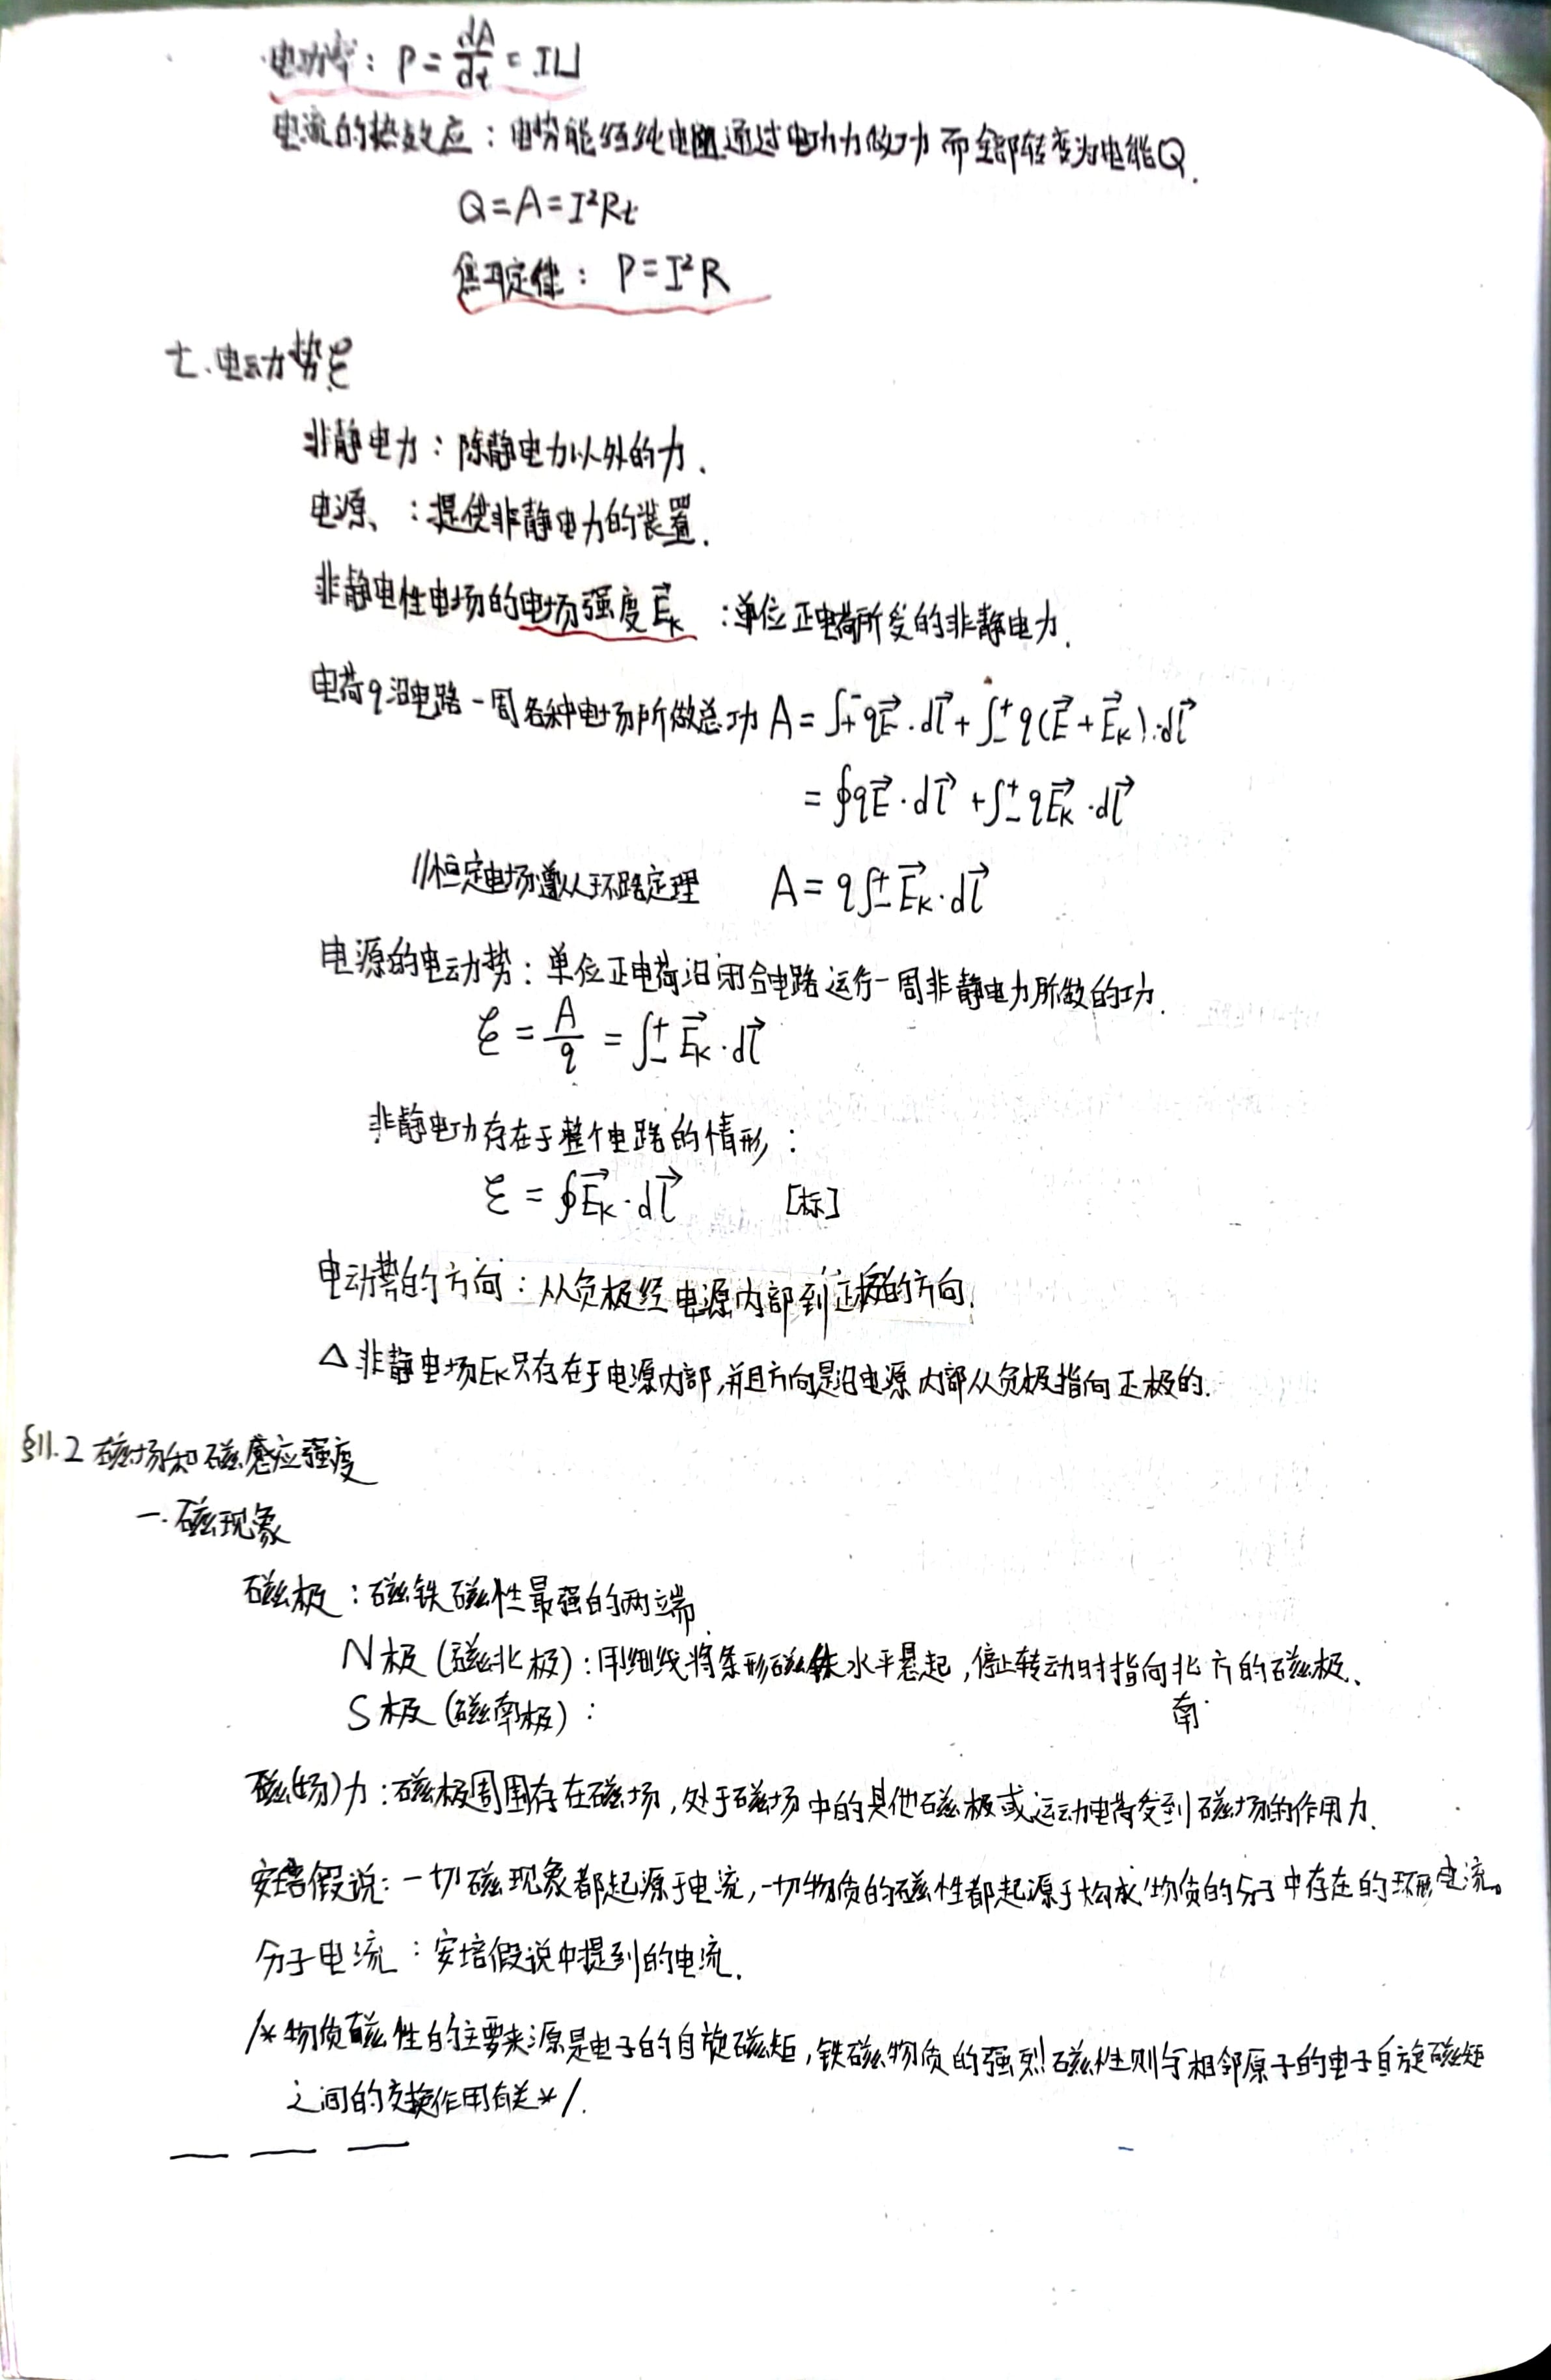 电功率：P = dA/dt = IU
电流的热效应：电势能经纯电阻通过电功力做功而全部转变为电能Q.
Q=A=I²Rt
焦耳定律：P=I²R
七、电动力势ℰ
非静电力：除静电力以外的力.
电源、：提供非静电力的装置.
非静电性电场的电场强度E⃗ₖ：单位正电荷所受的非静电力.
电荷q沿电路一周各种电场所做总功 A = ∫₊⁻ qE⃗·dl⃗ + ∫₋⁺ q(E⃗+E⃗ₖ)·dl⃗
= ∮qE⃗·dl⃗ + ∫₋⁺ qE⃗ₖ·dl⃗
//恒定电场遵从环路定理 A = q∫₋⁺ E⃗ₖ·dl⃗
电源的电动力势：单位正电荷沿闭合电路运行一周非静电力所做的功.
ℰ = A/q = ∫₋⁺ E⃗ₖ·dl⃗
非静电力存在于整个电路的情形：
ℰ = ∮E⃗ₖ·dl⃗ [标]
电动势的方向：从负极经电源内部到正极的方向.
△非静电场Eₖ只存在于电源内部,并且方向是沿电源内部从负极指向正极的.
§11.2 磁场和磁感应强度
一.磁现象
磁极：磁铁磁性最强的两端.
N极(磁北极)：用细线将条形磁铁水平悬起,停止转动时指向北方的磁极、
S极(磁南极)： 南
磁(场)力：磁极周围存在磁场,处于磁场中的其他磁极或运动电荷受到磁场的作用力.
安培假说：一切磁现象都起源于电流,一切物质的磁性都起源于构成物质的分子中存在的环形电流。
分子电流：安培假说中提到的电流.
/*物质磁性的主要来源是电子的自旋磁矩,铁磁物质的强烈磁性则与相邻原子的电子自旋磁矩
之间的交换作用有关*/.